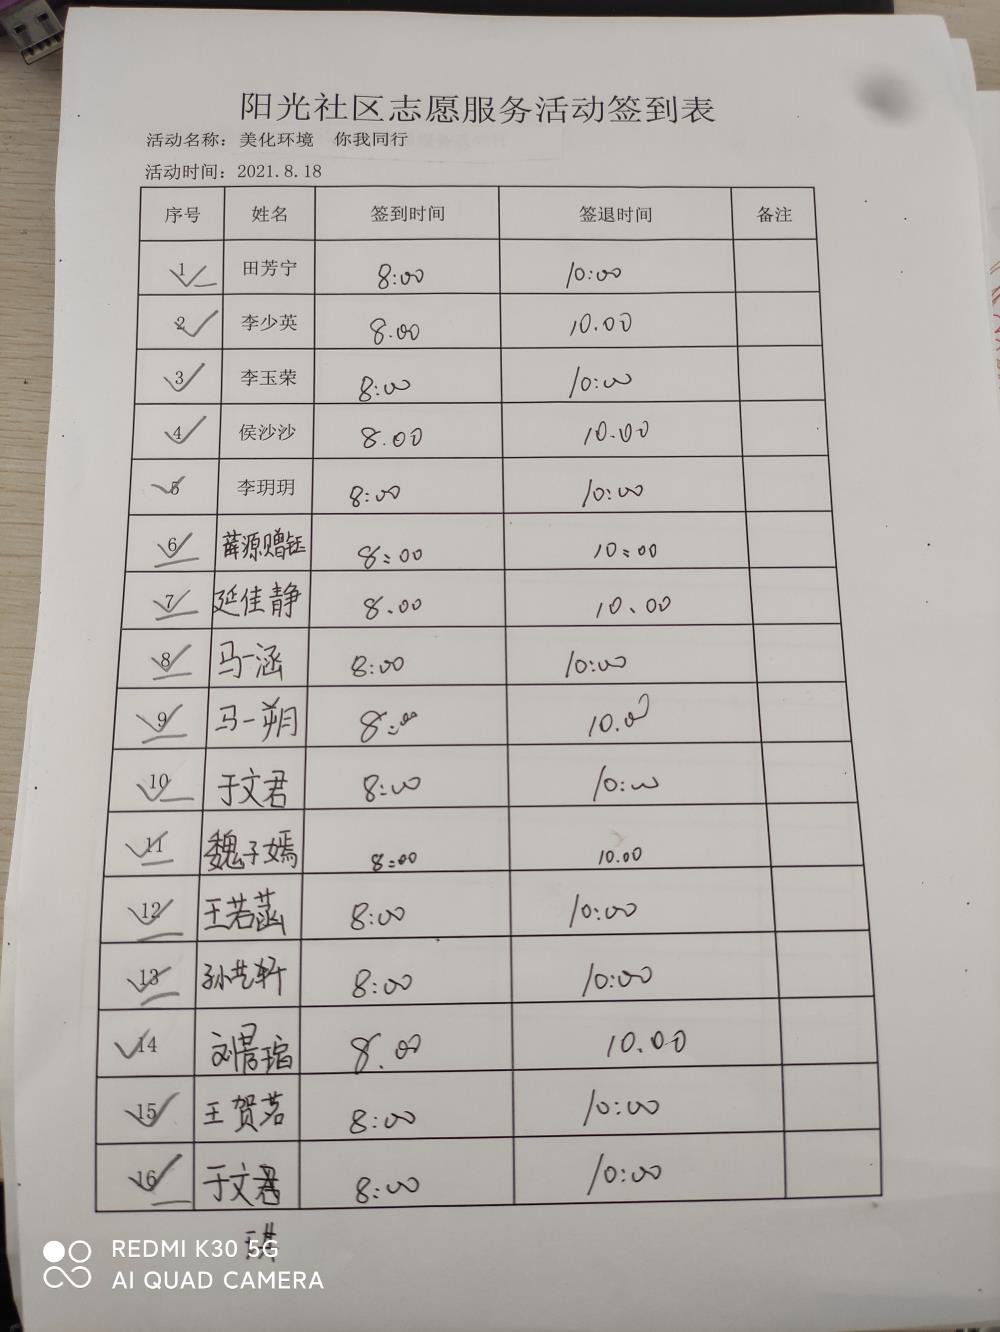 阳光社区志愿服务活动签到表
活动名称：美化环境 你我同行
活动时间：2021.8.18
序号 姓名 签到时间 签退时间 备注
1 田芳宁 8:00 10:00
2 李少英 8.00 10.00
3 李玉荣 8:00 10:00
4 侯沙沙 8.00 10.00
5 李玥玥 8:00 10:00
6 薛源赠钰 8:00 10:00
7 延佳静 8.00 10.00
8 马一涵 8:00 10:00
9 马一朔 8:00 10.00
10 于文君 8:00 10:00
11 魏子嫣 8:00 10.00
12 王若菡 8:00 10:00
13 孙艺轩 8:00 10:00
14 刘景瑄 8.00 10.00
15 王贺茗 8:00 10:00
16 于文 8:00 10:00
琪
REDMI K30 5G
AI QUAD CAMERA